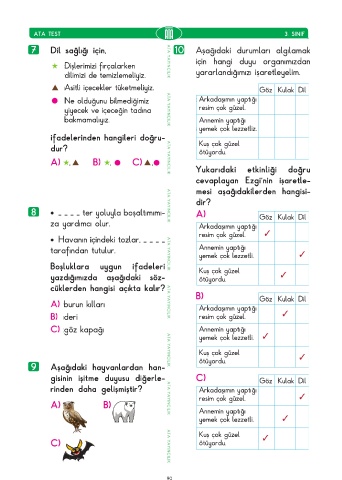 ATA TEST
3. SINIF
7 Dil sağlığı için,
★ Dişlerimizi fırçalarken
dilimizi de temizlemeliyiz.
▲ Asitli içecekler tüketmeliyiz.
● Ne olduğunu bilmediğimiz
yiyecek ve içeceğin tadına
bakmamalıyız.
ifadelerinden hangileri doğru-
dur?
A) ★, ▲ B) ★, ● C) ▲, ●
8 • _ _ _ _ ter yoluyla boşaltımımı-
za yardımcı olur.
• Havanın içindeki tozlar, _ _ _ _
tarafından tutulur.
Boşluklara uygun ifadeleri
yazdığımızda aşağıdaki söz-
cüklerden hangisi açıkta kalır?
A) burun kılları
B) deri
C) göz kapağı
9 Aşağıdaki hayvanlardan han-
gisinin işitme duyusu diğerle-
rinden daha gelişmiştir?
A)
B)
C)
ATA YAYINCILIK
ATA YAYINCILIK
ATA YAYINCILIK
ATA YAYINCILIK
ATA YAYINCILIK
ATA YAYINCILIK
ATA YAYINCILIK
ATA YAYINCILIK
ATA YAYINCILIK
10 Aşağıdaki durumları algılamak
için hangi duyu organımızdan
yararlandığımızı işaretleyelim.
Göz Kulak Dil
Arkadaşımın yaptığı
resim çok güzel.
Annemin yaptığı
yemek çok lezzetliz.
Kuş çok güzel
ötüyordu.
Yukarıdaki etkinliği doğru
cevaplayan Ezgi'nin işaretle-
mesi aşağıdakilerden hangisi-
dir?
A)
Göz Kulak Dil
Arkadaşımın yaptığı
resim çok güzel. ✓
Annemin yaptığı
yemek çok lezzetli. ✓
Kuş çok güzel
ötüyordu. ✓
B)
Göz Kulak Dil
Arkadaşımın yaptığı
resim çok güzel. ✓
Annemin yaptığı
yemek çok lezzetli. ✓
Kuş çok güzel
ötüyordu. ✓
C)
Göz Kulak Dil
Arkadaşımın yaptığı
resim çok güzel. ✓
Annemin yaptığı
yemek çok lezzetli. ✓
Kuş çok güzel
ötüyordu. ✓